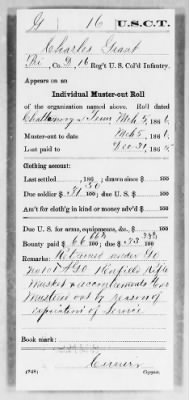 G 16 U.S.C.T.
Charles Grant
Pri, Co. G, 16 Reg't U.S. Col'd Infantry.
Appears on an
Individual Muster-out Roll
of the organization named above. Roll dated
Chattanooga Tenn Mch 5, 1866.
Muster-out to date Mch 5, 1866.
Last paid to Dec 31, 1865.
Clothing account:
Last settled , 186 ; drawn since $ 100
Due soldier $ 31 50/100; due U.S. $ 100
Am't for cloth'g in kind or money adv'd $ 100
Due U.S. for arms, equipments, &c., $ 100
Bounty paid $ 66 66⅔/100; due $ 33 33⅓/100
Remarks: Retained under Go
No 101 AGO Enfield Rifle
Musket & accoutrements
Mustered out by reason of
expiration of service
Book mark:
Copyist.